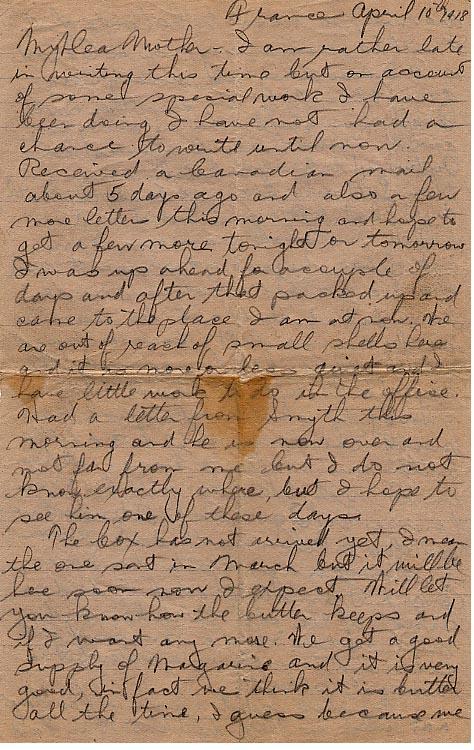 France April 10th 1918
My Dea Mother - I am rather late
in writing this time but on account
of some special work I have
been doing I have not had a
chance to write until now.
Received a Canadian mail
about 5 days ago and also a few
more letter this morning and hope to
get a few more tonight or tomorrow
I was up ahead fo a couple of
days and after that packed up and
came to the place I am at now. We
are out of reach of small shells here
and it is more or less quiet and I
have little work to do in the office.
Had a letter from Smyth this
morning and he is now over and
not far from me but I do not
know exactly where, but I hope to
see him one of these days.
The box has not arived yet, I mean
the one sent in March but it will be
here soon now I expect. Will let
you know how the butter keeps and
if I want any more. We get a good
supply of Magarine and it is very
good, in fact we think it is butter
all the time, I guess because we